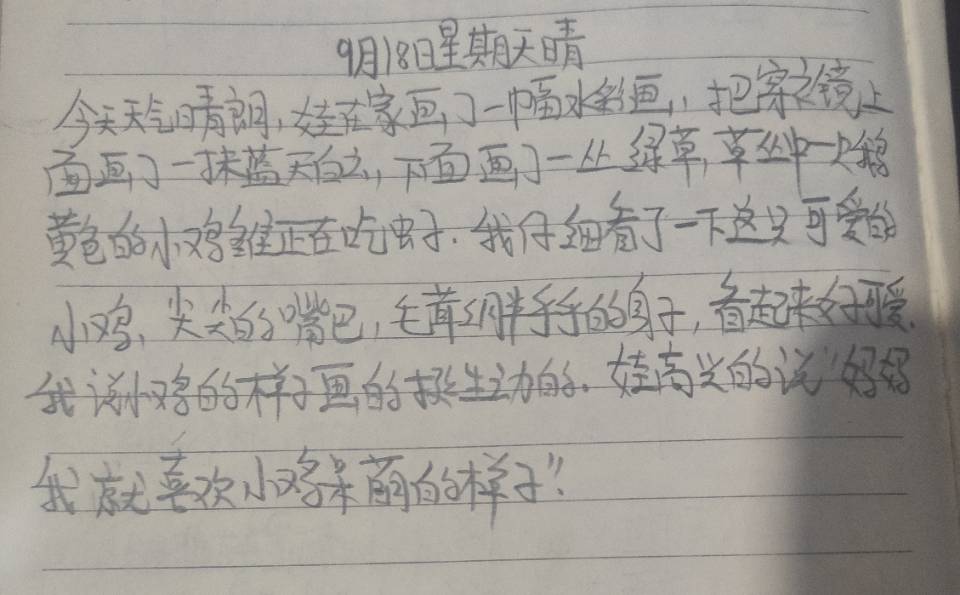 9月18日星期天晴
今天天气晴朗,娃在家画了一幅水彩画,把穿之镜上
面画了一抹蓝天白云,下面画了一丛绿草,草丛中一只鹅
黄色的小鸡雏正在吃虫子.我仔细看了一下这只可爱的
小鸡,尖尖的嘴巴,毛茸胖乎乎的身子,看起来好可爱.
我说小鸡的样子画的挺生动的.娃高兴的说"妈妈
我就喜欢小鸡呆萌的样子".